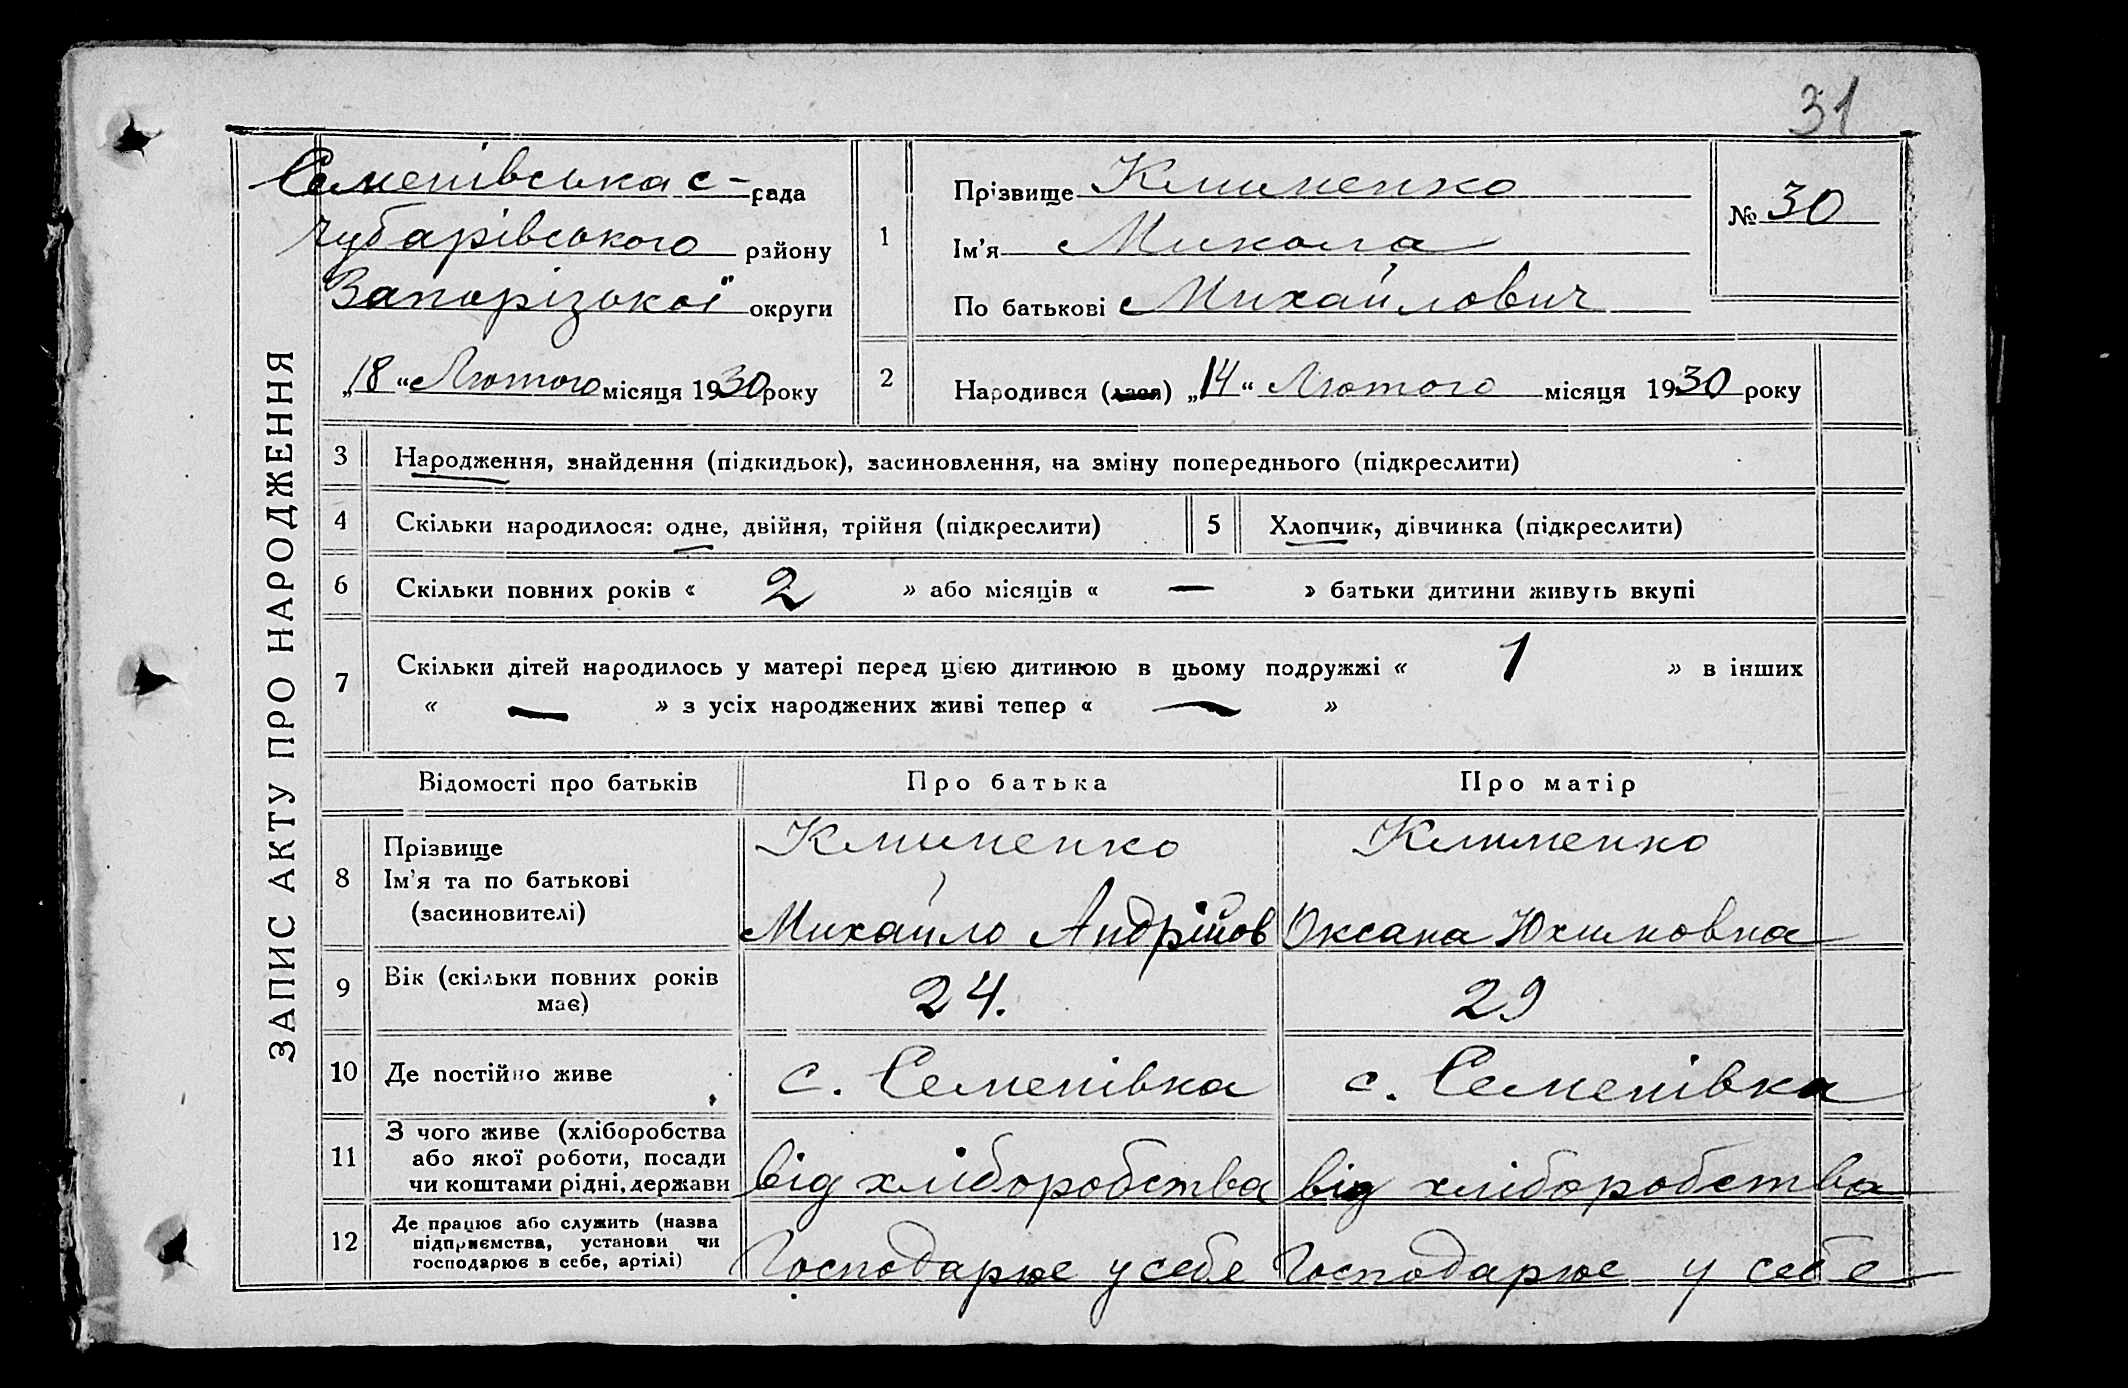 31
ЗАПИС АКТУ ПРО НАРОДЖЕННЯ
Семенівська с-рада
Чубарівського району
Запорізької округи
„18“ Лютого місяця 1930 року
1
Прізвище Клименко
Ім’я Микола
По батькові Михайлович
№ 30
2
Народився (лася) „14“ Лютого місяця 1930 року
3 Народження, знайдення (підкидьок), засиновлення, на зміну попереднього (підкреслити)
4 Скільки народилося: одне, двійня, трійня (підкреслити) 5 Хлопчик, дівчинка (підкреслити)
6 Скільки повних років « 2 » або місяців « — » батьки дитини живуть вкупі
7 Скільки дітей народилось у матері перед цією дитиною в цьому подружжі « 1 » в інших
« — » з усіх народжених живі тепер « — »
Відомості про батьків Про батька Про матір
8 Прізвище Клименко Клименко
Ім’я та по батькові
(засиновителі) Михайло Андрійов Оксана Юхимовна
9 Вік (скільки повних років
має) 24. 29
10 Де постійно живе с. Семенівка с. Семенівка
11 З чого живе (хліборобства
або якої роботи, посади
чи коштами рідні, держави від хліборобства від хліборобства
12 Де працює або служить (назва
підприємства, установи чи
господарює в себе, артілі) Господарює у себе Господарює у себе